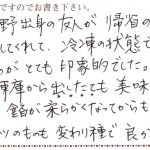 ですのでお書き下さい。
野出身の友人が帰省の
してくれて、冷凍の状態で
のが とても印象的でした。
庫から出したても美味
餡が柔らかくなってからも
ツのものも変わり種で良か